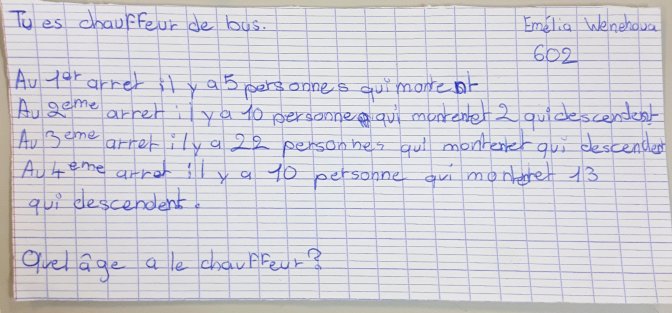 Tu es chauffeur de bus.
Emélia Wenehoua
602
Au 1er arret il y a 5 personnes qui montent
Au 2eme arret il y a 10 personnes qui montent et 2 qui descendent
Au 3eme arret il y a 22 personnes qui montent et qui descendent
Au 4eme arret il y a 10 personne qui montent et 13
qui descendent.
Quel âge a le chauffeur?